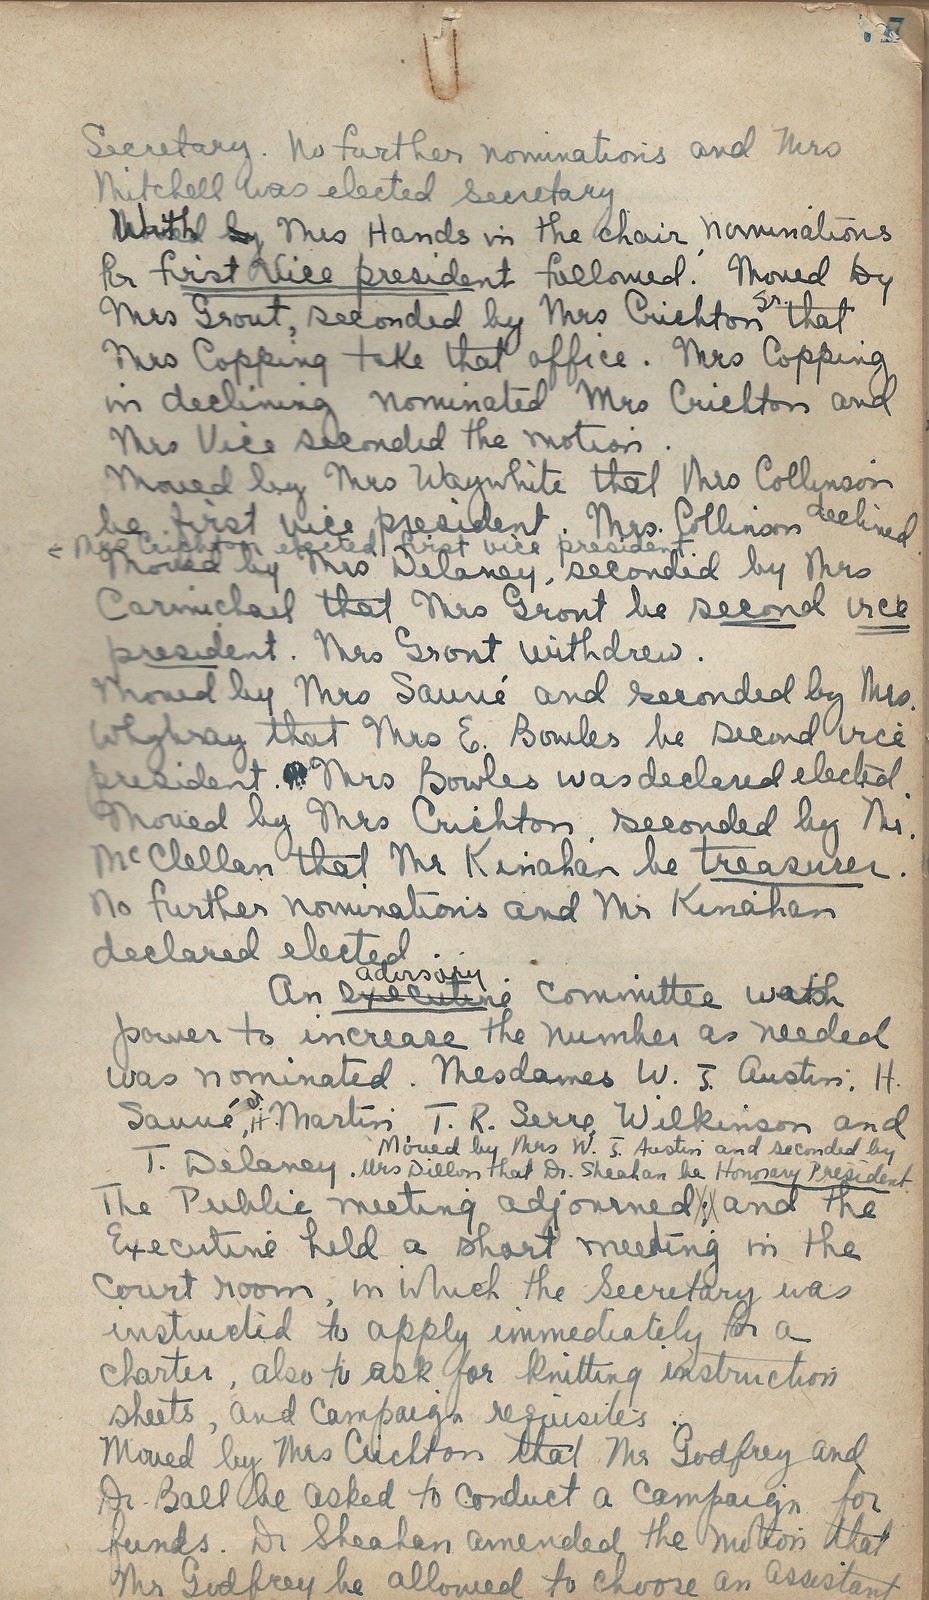 Secretary. No further nominations and Mrs
Mitchell was elected secretary
With Mrs Hands in the chair, nominations
for first Vice president followed. Moved by
Mrs Grout, seconded by Mrs Crichton Sr. that
Mrs Copping take that office. Mrs Copping
in declining nominated Mrs Crichton and
Mrs Vice seconded the motion.
Moved by Mrs Waywhite that Mrs Collinson
be first vice president. Mrs. Collinson declined
Mrs Crichton elected first vice president
Moved by Mrs Delaney, seconded by Mrs
Carmichael that Mrs Gront be second vice
president. Mrs Gront withdrew.
Moved by Mrs Sauvé and seconded by Mrs.
that Mrs E. Bowles be second vice
president. Mrs Bowles was declared elected.
Moved by Mrs Crichton, seconded by Mr.
McClellan that Mr Kinahan be treasurer.
No further nominations and Mr Kinahan
declared elected.
advisory
An executive committee with
power to increase the number as needed
was nominated. Mesdames W. J. Austin, H.
Sauvé, H. Martin, T. R. Serre, Wilkinson and
Moved by Mrs W. J. Austin and seconded by
T. Delaney. Mrs Dillon that Dr. Sheahan be Honorary President.
The Public meeting adjourned and the
Executive held a short meeting in the
court room, in which the Secretary was
instructed to apply immediately for a
charter, also to ask for knitting instruction
sheets, and campaign requisites.
Moved by Mrs Crichton that Mr Godfrey and
Dr. Ball be asked to conduct a campaign for
funds. Dr Sheahan amended the motion that
Mr Godfrey be allowed to choose an assistant